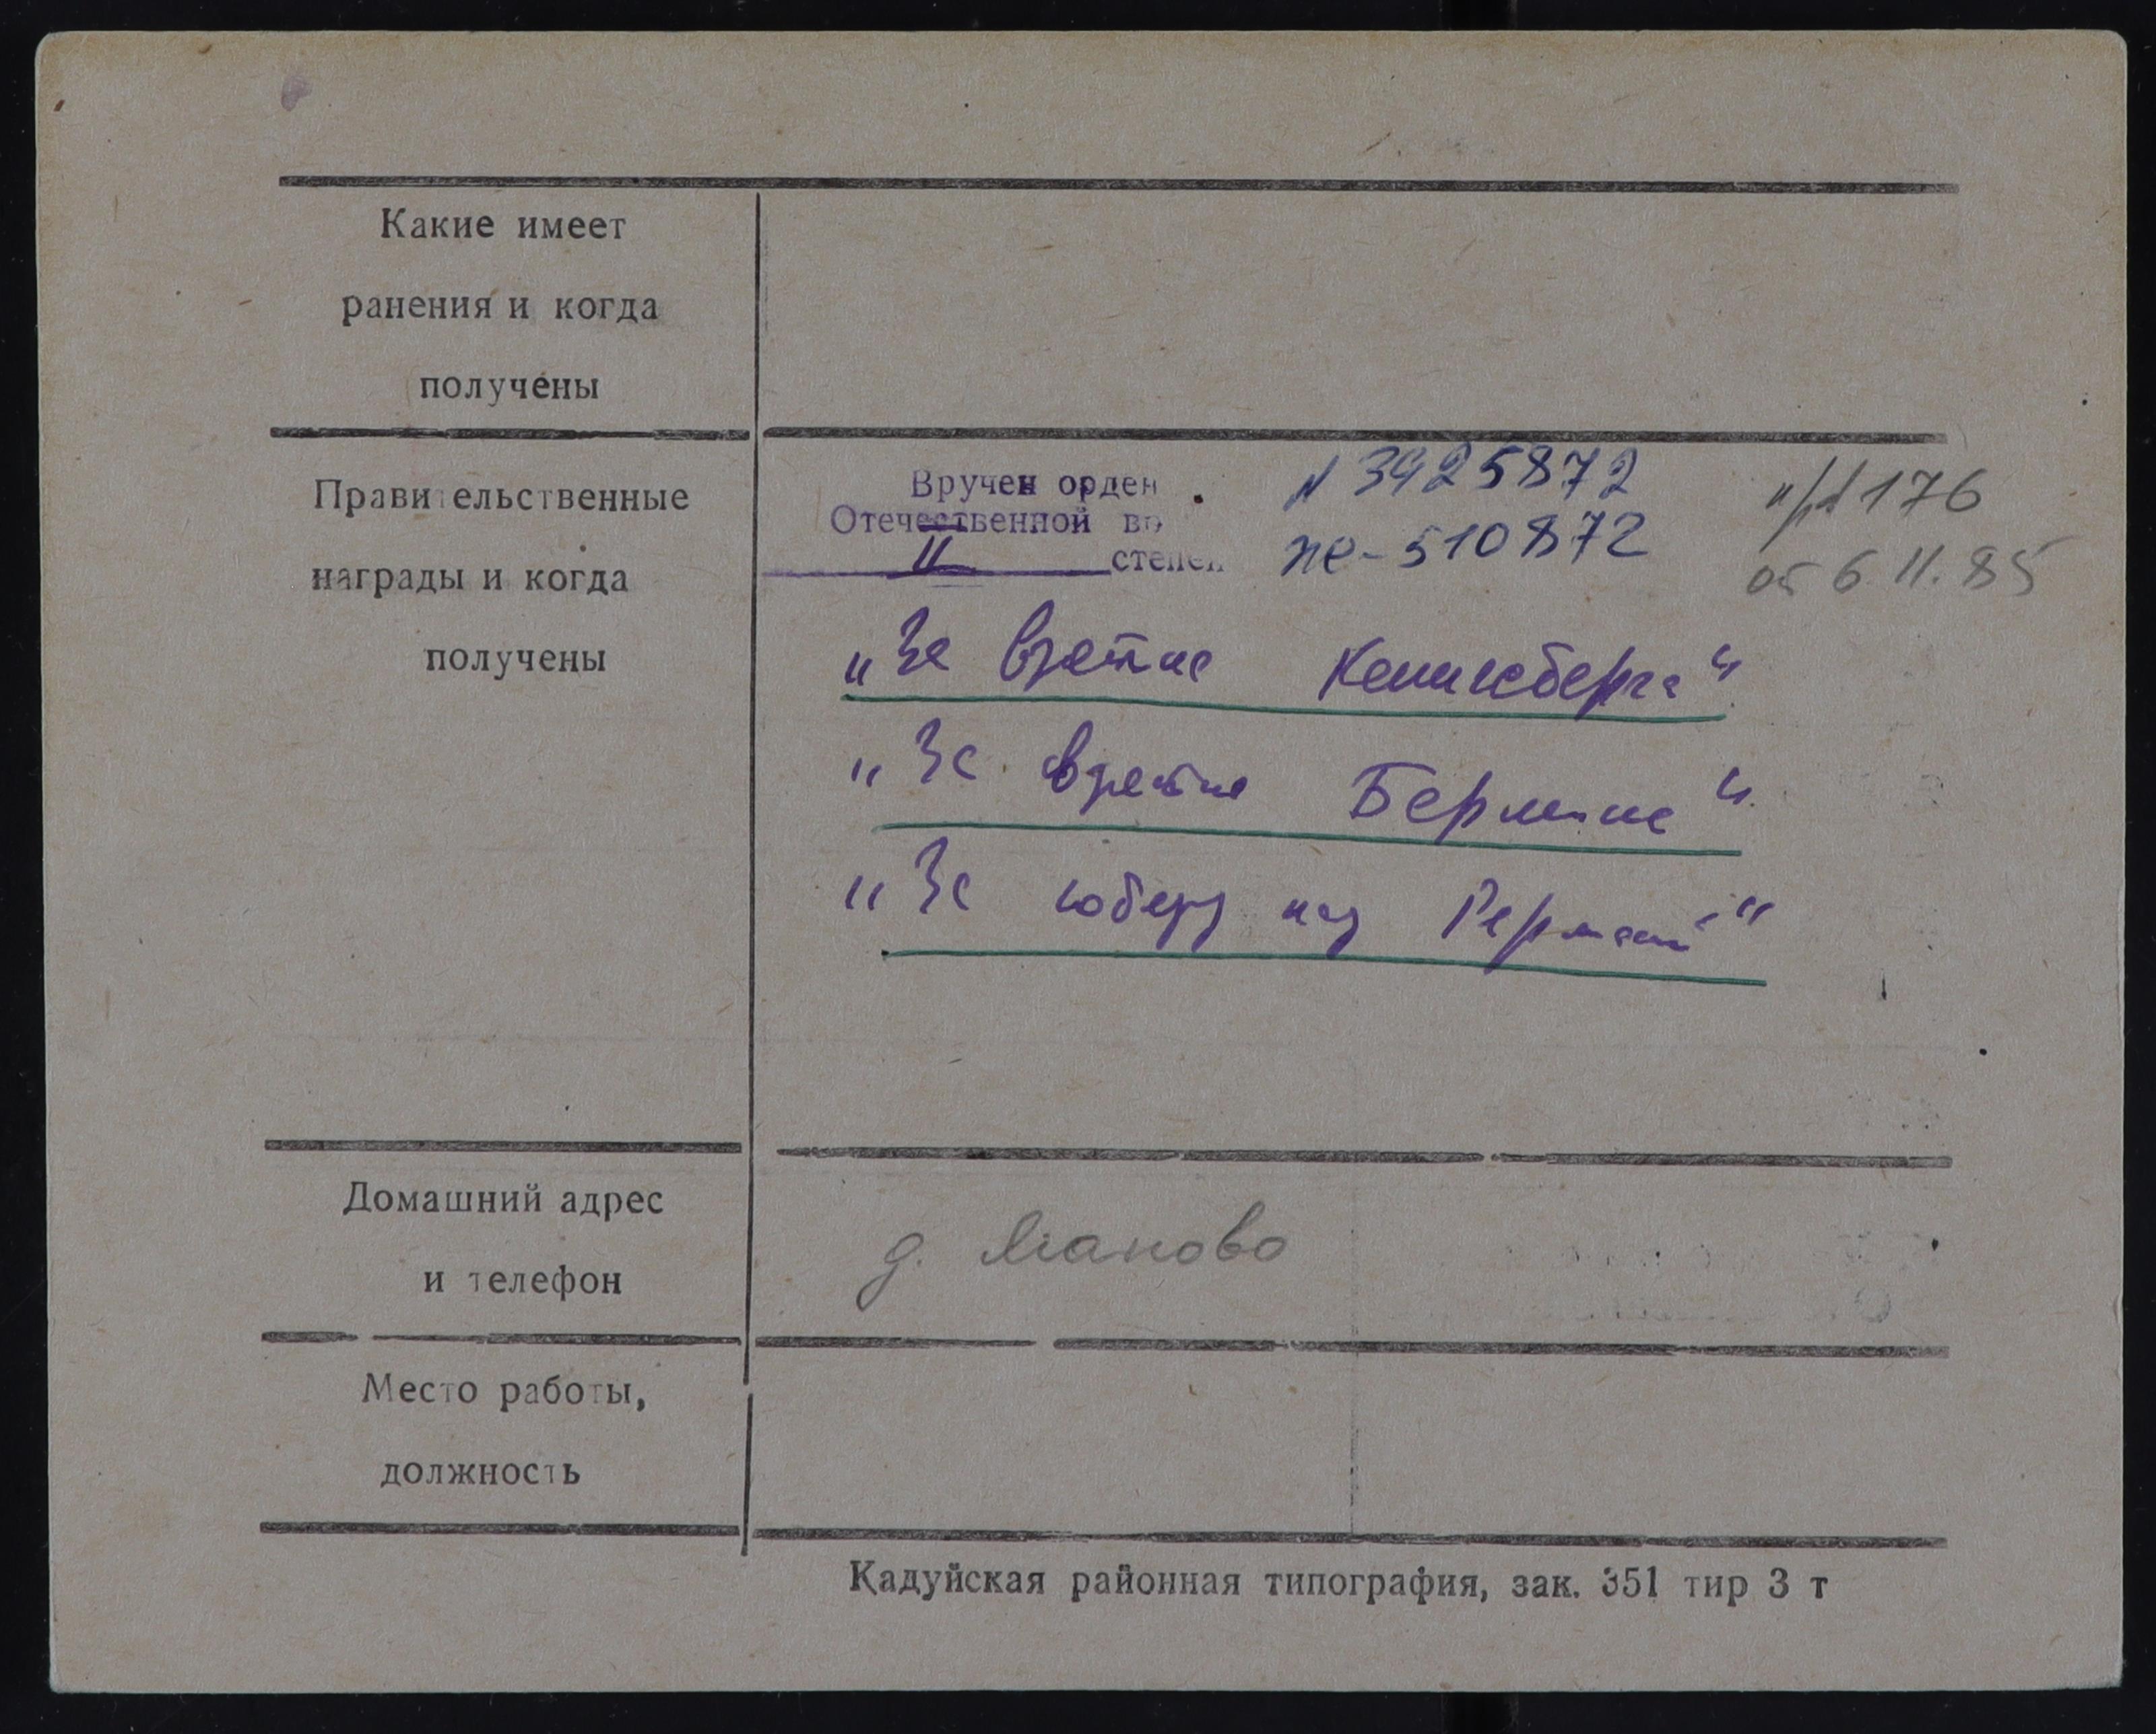 Какие имеет
ранения и когда
получены
Правительственные
награды и когда
получены
Вручен орден
Отечественной во
II степен
N 3925872
пр 176
от 6.11.85
„За взятие Кенигсберга“
„За взятие Берлина“
„За победу над Германией“
Домашний адрес
и телефон
д.
Место работы,
должность
Кадуйская районная типография, зак. 351 тир 3 т